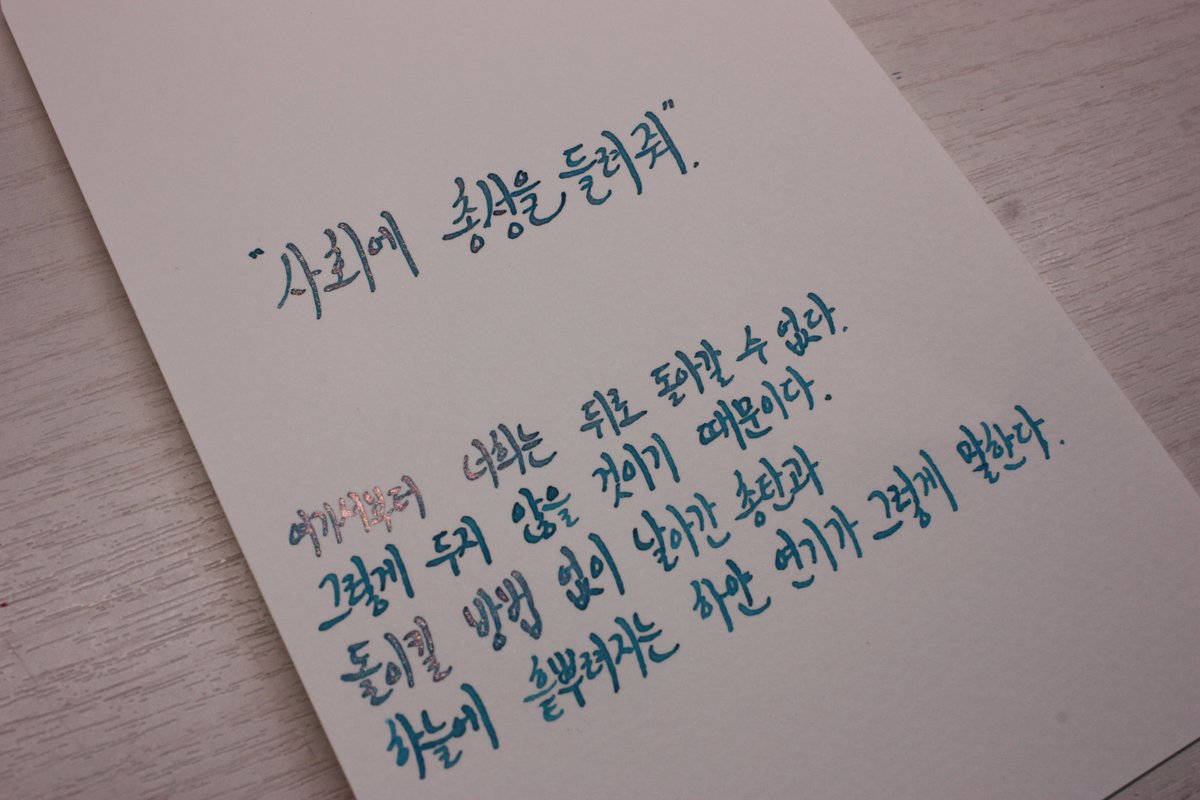 "사회에 총성을 들려줘".
여기서부터 너희는 뒤로 돌아갈 수 없다.
그렇게 두지 않을 것이기 때문이다.
돌이킬 방법 없이 날아간 총탄과
하늘에 흩뿌려지는 하얀 연기가 그렇게 말한다.